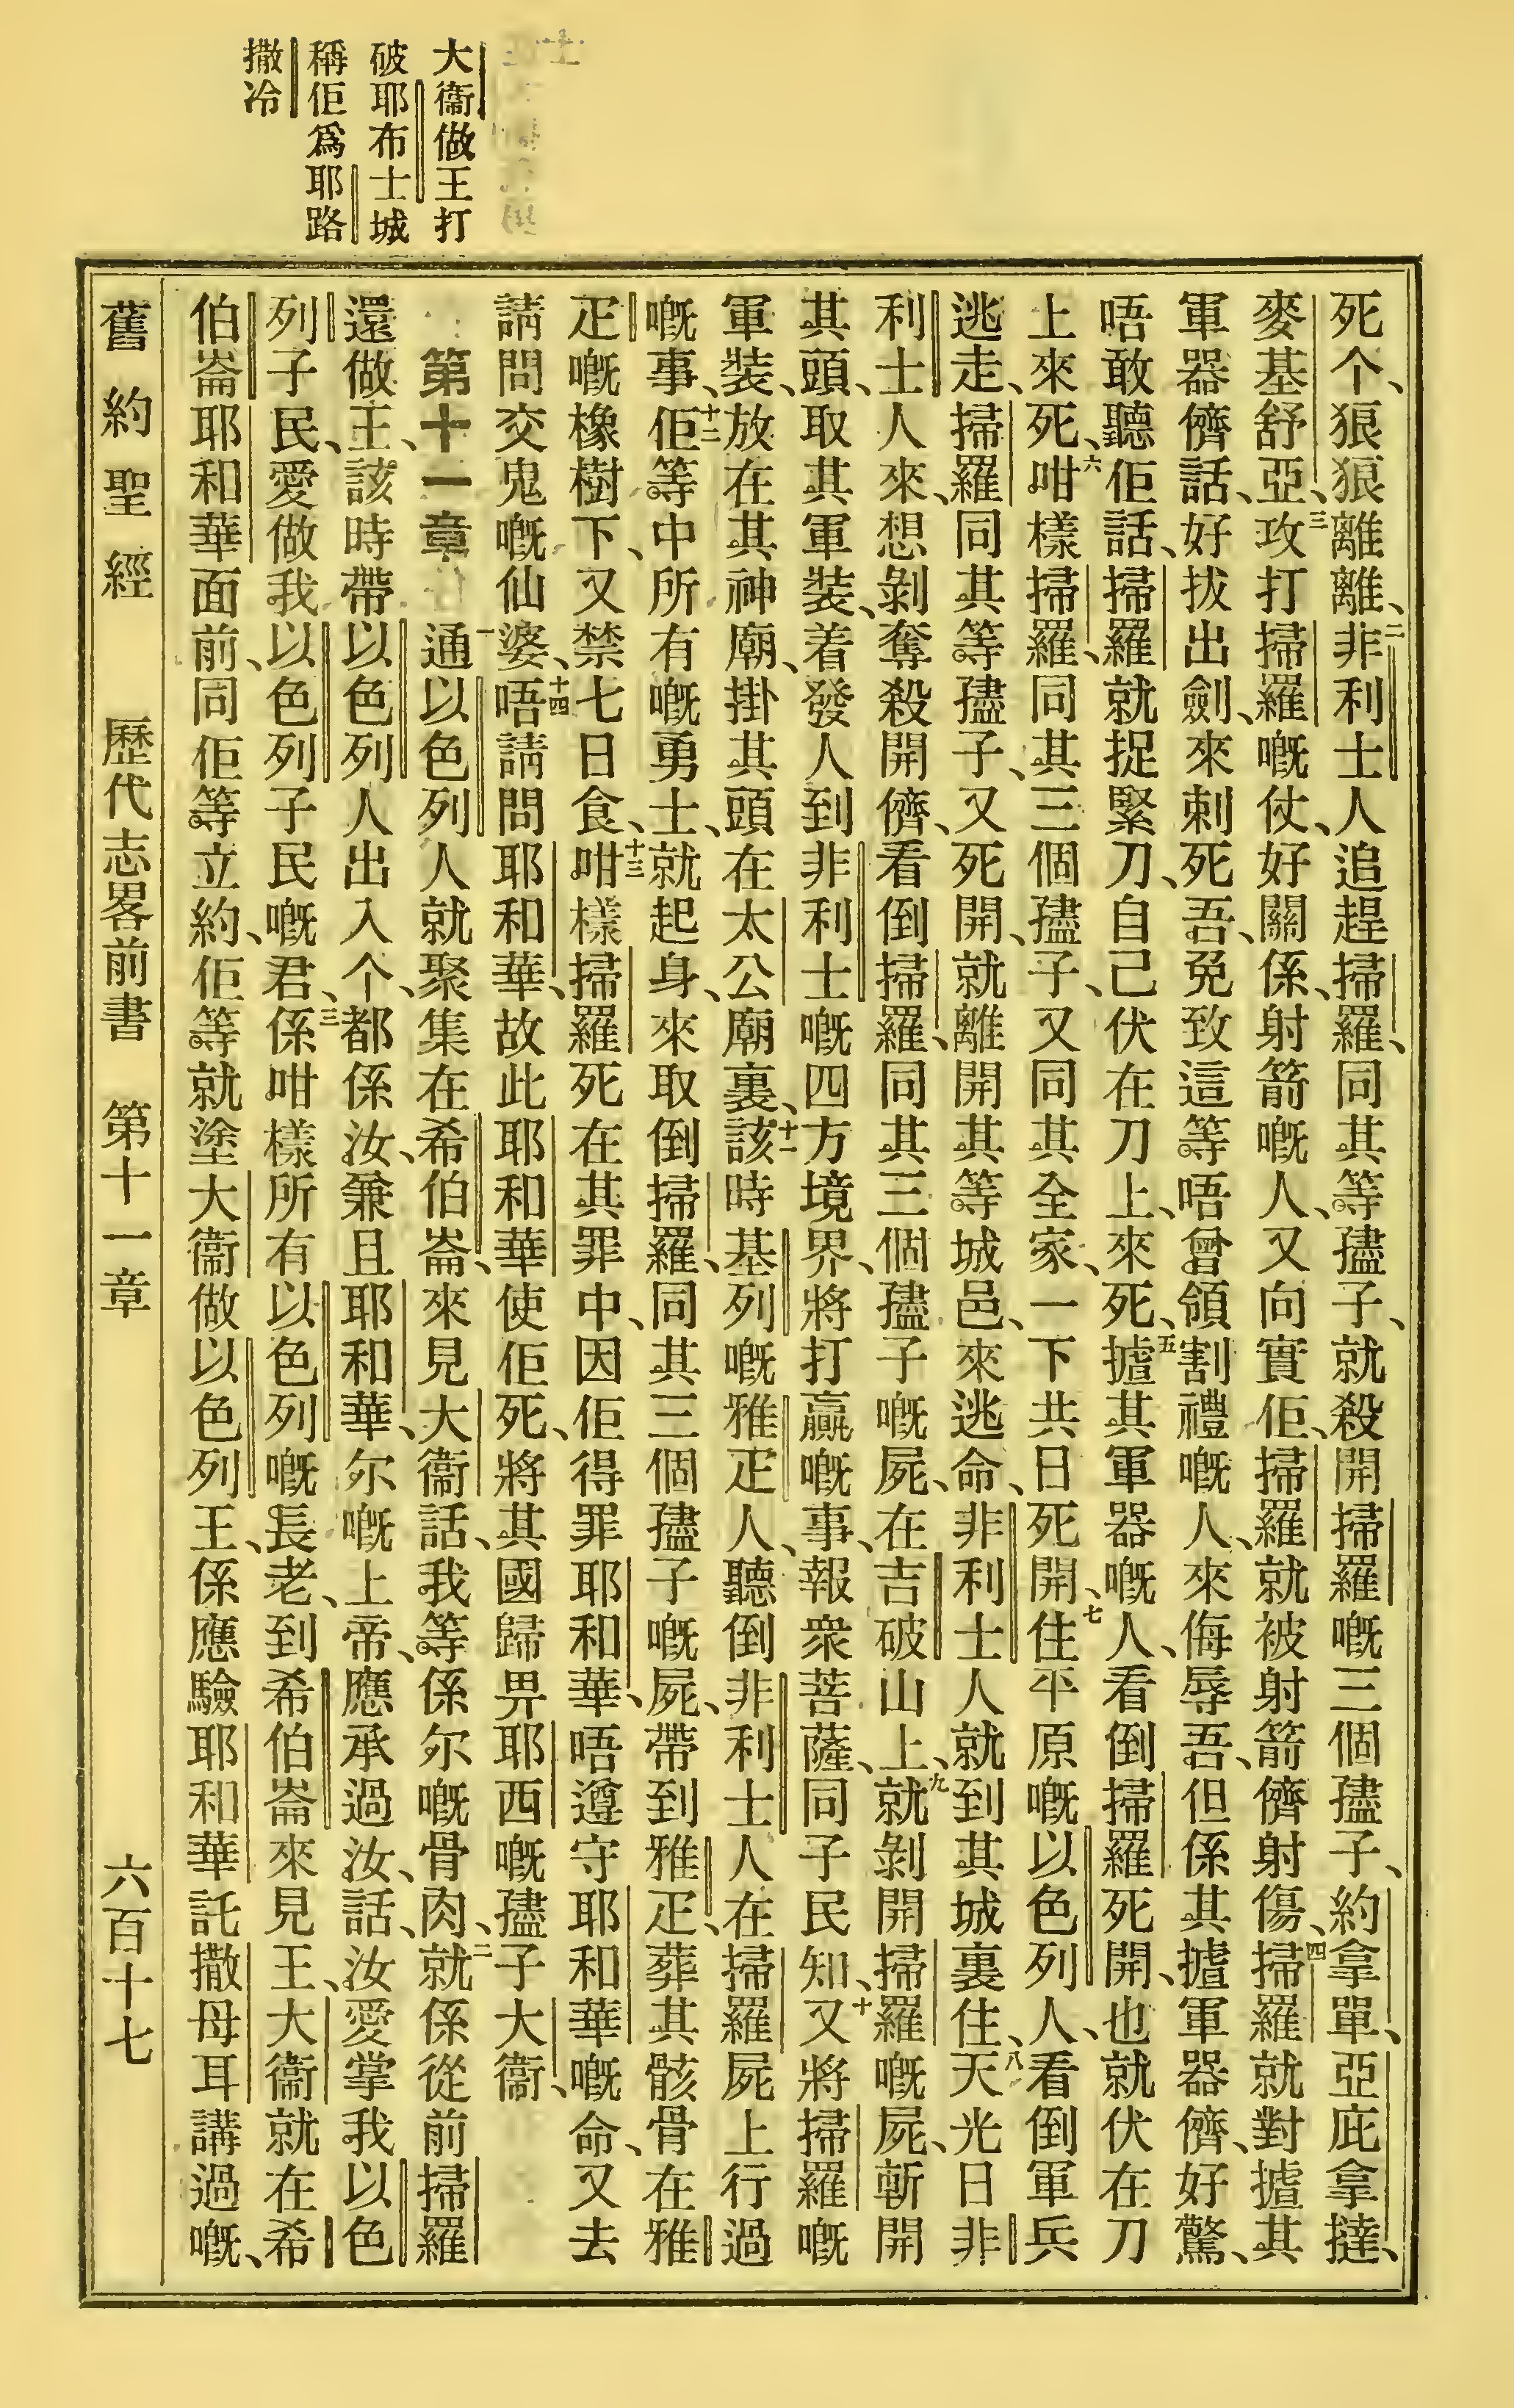 大衞做王打
破耶布士城
稱佢爲耶路
撒冷
死个、狼狼離離、二非利士人追趕掃羅、同其等孻子、就殺開掃羅嘅三個孻子、約拿單、亞庇拿撻、
麥基舒亞、三攻打掃羅嘅仗、好關係、射箭嘅人、又向實佢、掃羅就被射箭儕射傷、四掃羅就對摣其
軍器儕話、好拔出劍、來刺死吾、免致這等唔曾領割禮嘅人、來侮辱吾、但係其摣軍器儕、好驚、
唔敢聽佢話、掃羅就捉緊刀、自己伏在刀上、來死、五摣其軍器嘅人、看倒掃羅死開、也就伏在刀
上來死、六咁樣掃羅、同其三個孻子、又同其全家、一下共日死開、七住平原嘅以色列人、看倒軍兵
逃走、掃羅同其等孻子、又死開、就離開其等城邑、來逃命、非利士人就到其城裏住、八天光日非
利士人來、想剝奪殺開儕、看倒掃羅、同其三個孻子嘅屍、在吉破山上、九就剝開掃羅嘅屍、斬開
其頭、取其軍裝、着發人到非利士嘅四方境界、將打贏嘅事、報衆菩薩、同子民知、十又將掃羅嘅
軍裝、放在其神廟、掛其頭在太公廟裏、十一該時基列嘅雅疋人、聽倒非利士人在掃羅屍上行過
嘅事、十二佢等中所有嘅勇士、就起身、來取倒掃羅、同其三個孻子嘅屍、帶到雅疋、葬其骸骨在雅
疋嘅橡樹下、又禁七日食、十三咁樣掃羅死在其罪中、因佢得罪耶和華、唔遵守耶和華嘅命、又去
請問交鬼嘅仙婆、十四唔請問耶和華、故此耶和華使佢死、將其國歸畀耶西嘅孻子大衞、
第十一章 一通以色列人就聚集在希伯崙、來見大衞話、我等係尔嘅骨肉、二就係從前掃羅
還做王、該時帶以色列人出入个、都係汝、兼且耶和華、尔嘅上帝、應承過汝、話、汝愛掌我以色
列子民、愛做我以色列子民嘅君、三係咁樣所有以色列嘅長老、到希伯崙來見王、大衞就在希
伯崙耶和華面前、同佢等立約、佢等就塗大衞做以色列王、係應驗耶和華託撒母耳講過嘅、
舊約聖經 歷代志畧前書 第十一章 六百十七